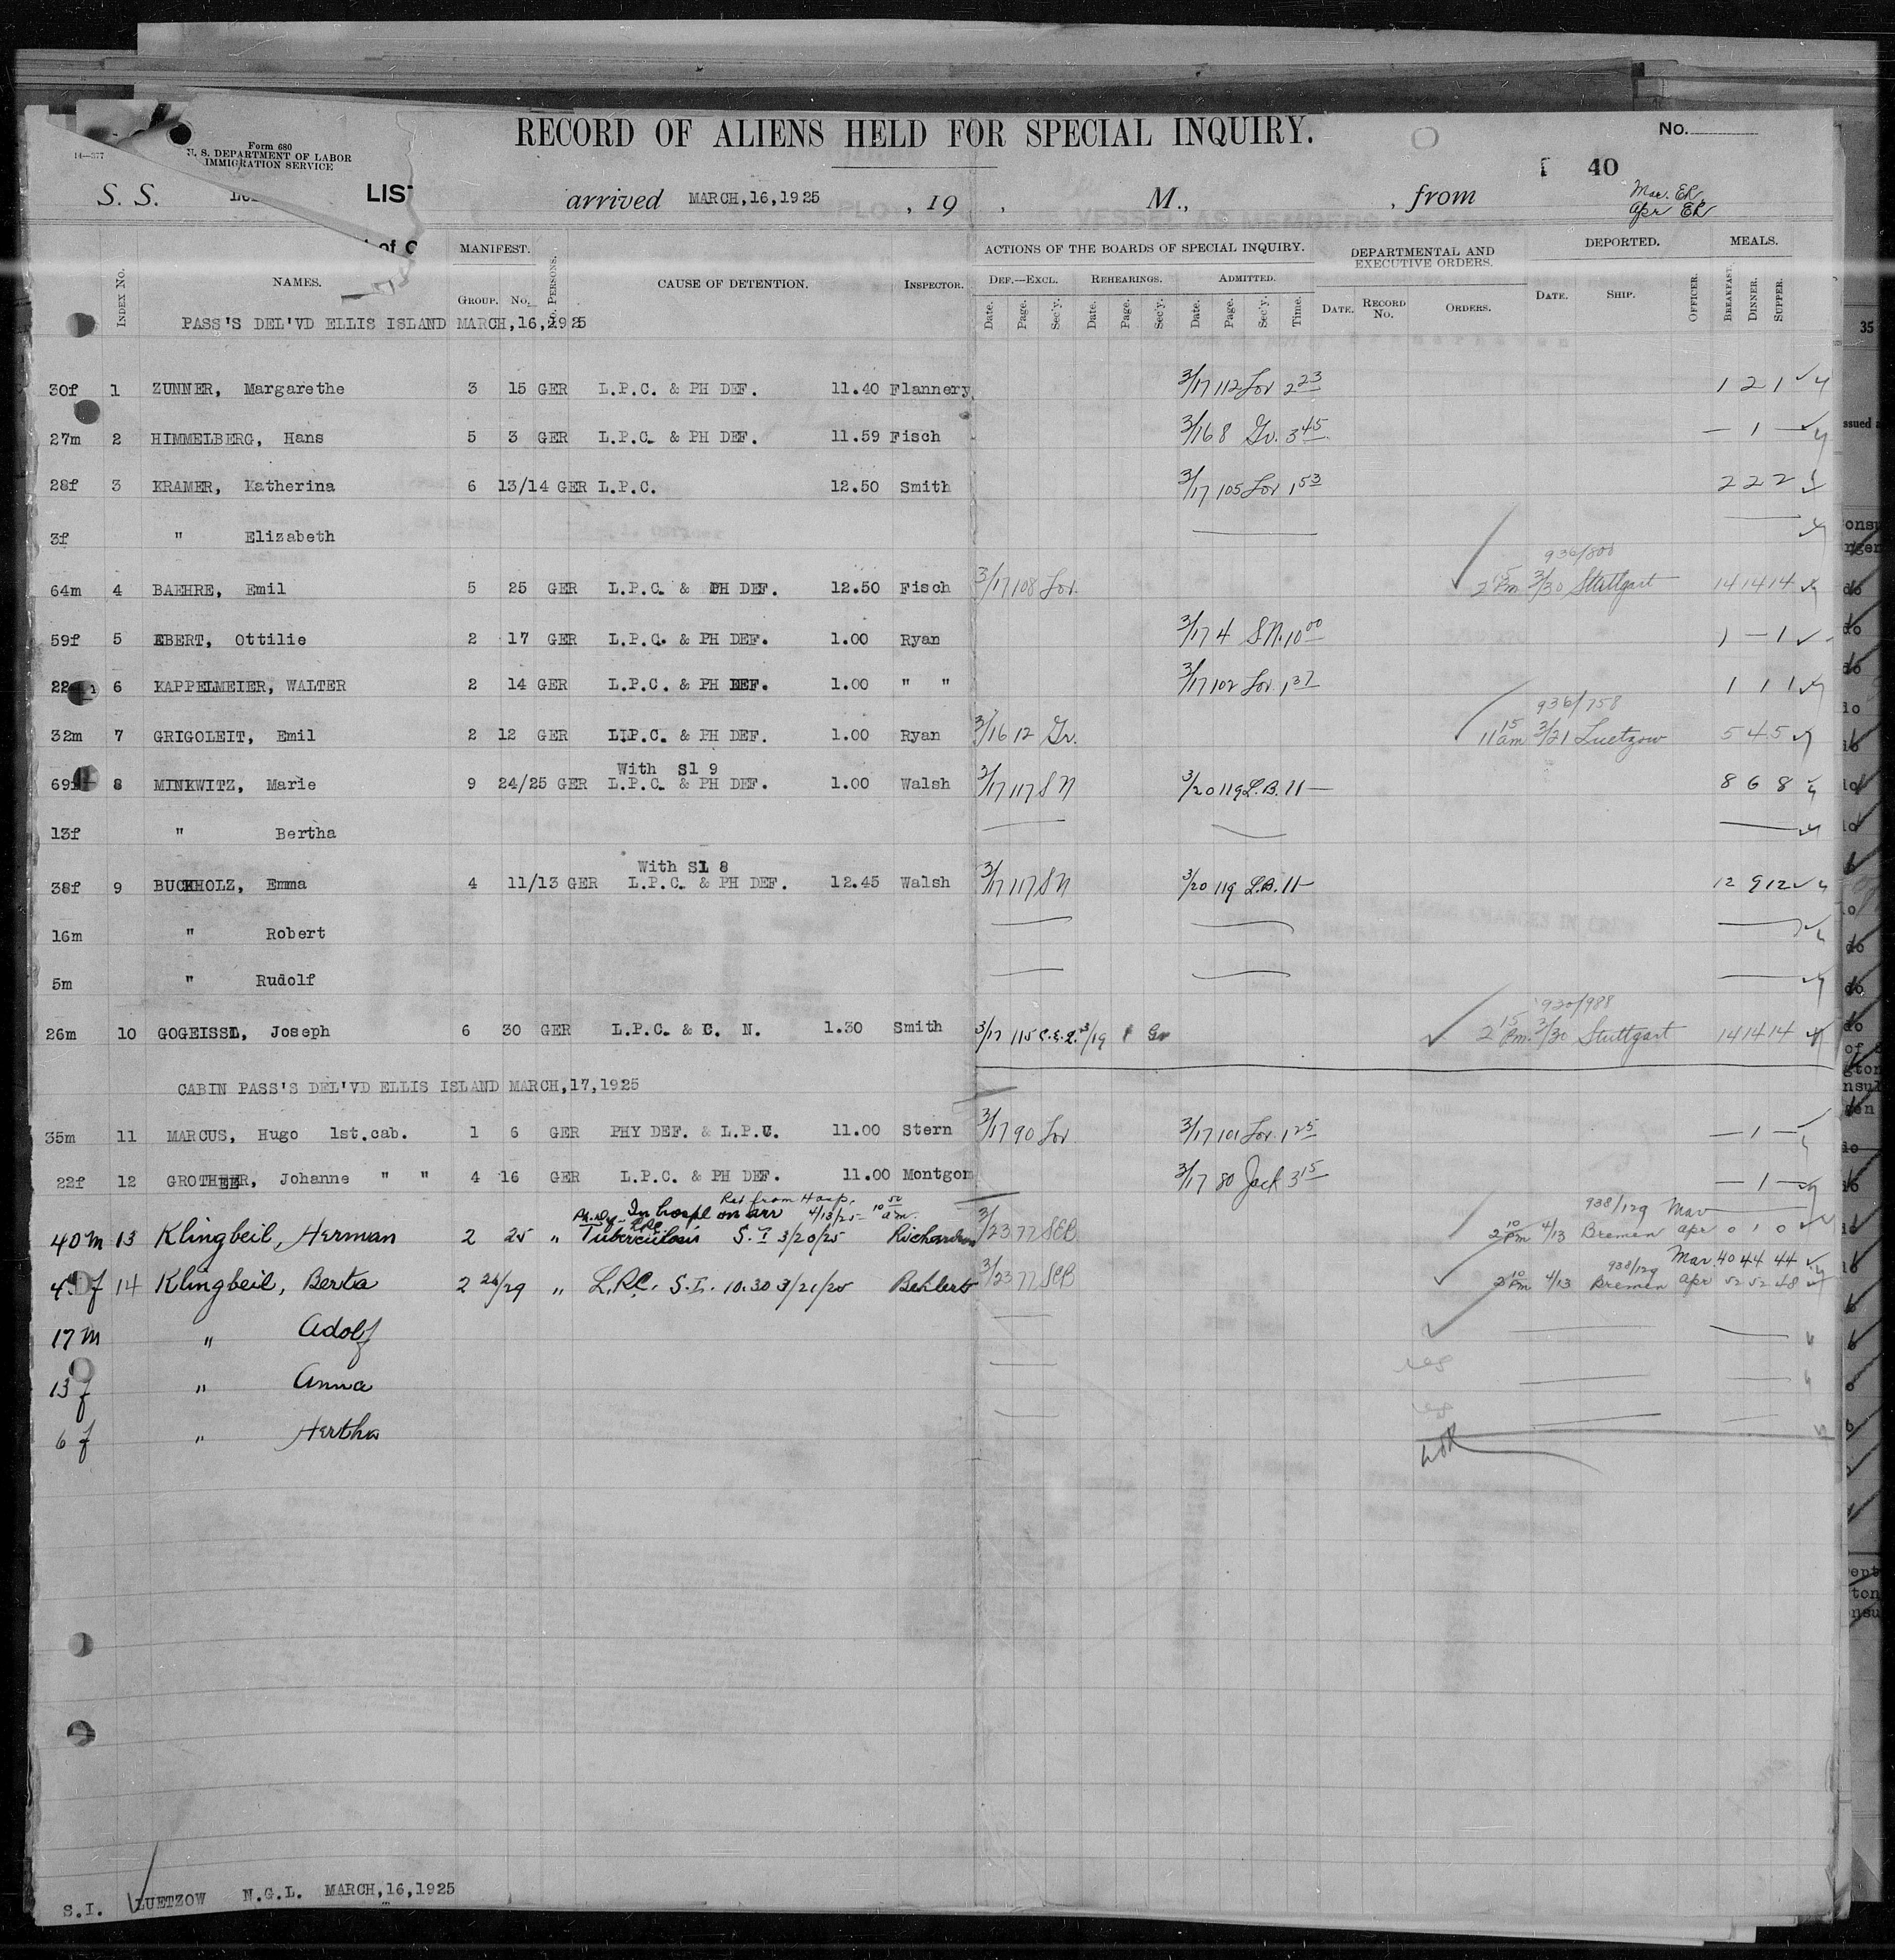 RECORD OF ALIENS HELD FOR SPECIAL INQUIRY.
No.
14—377
Form 680
U. S. DEPARTMENT OF LABOR
IMMIGRATION SERVICE
40
S. S. LIST arrived MARCH,16,1925 , 19 , M., , from
Mar. ER
Apr ER
INDEX No. NAMES. MANIFEST. Group. No. No. PERSONS. CAUSE OF DETENTION. INSPECTOR. ACTIONS OF THE BOARDS OF SPECIAL INQUIRY. DEF.—EXCL. Date. Page. Sec'y. REHEARINGS. Date. Page. Sec'y. ADMITTED. Date. Page. Sec'y. Time. DEPARTMENTAL AND EXECUTIVE ORDERS. DATE. RECORD No. ORDERS. DEPORTED. DATE. SHIP. OFFICER. MEALS. BREAKFAST. DINNER. SUPPER.
PASS'S DEL'VD ELLIS ISLAND MARCH,16,1925
30f 1 ZUNNER, Margarethe 3 15 GER L.P.C. & PH DEF. 11.40 Flannery 3/17 112 Lor 2 23 1 2 1
27m 2 HIMMELBERG, Hans 5 3 GER L.P.C. & PH DEF. 11.59 Fisch 3/16 8 Gr. 3 45 — 1 —
28f 3 KRAMER, Katherina 6 13/14 GER L.P.C. 12.50 Smith 3/17 105 Lor 1 53 2 2 2
3f " Elizabeth
936/800
64m 4 BAEHRE, Emil 5 25 GER L.P.C. & PH DEF. 12.50 Fisch 3/17 108 Lor. 2 15 Pm 3/30 Stuttgart 14 14 14
59f 5 EBERT, Ottilie 2 17 GER L.P.C. & PH DEF. 1.00 Ryan 3/17 4 S.N. 10 00 1 — 1
22m 6 KAPPELMEIER, WALTER 2 14 GER L.P.C. & PH DEF. 1.00 " " 3/17 102 Lor. 1 37 1 1 1
936/758
32m 7 GRIGOLEIT, Emil 2 12 GER L.P.C. & PH DEF. 1.00 Ryan 3/16 12 Gr. 11 15 am 3/21 Luetzow 5 4 5
With Sl 9
69f 8 MINKWITZ, Marie 9 24/25 GER L.P.C. & PH DEF. 1.00 Walsh 3/17 117 S N 3/20 119 L.B. 11 — 8 6 8
13f " Bertha
With Sl 8
38f 9 BUCKHOLZ, Emma 4 11/13 GER L.P.C. & PH DEF. 12.45 Walsh 3/17 117 S N 3/20 119 L.B. 11 — 12 9 12
16m " Robert
5m " Rudolf
930/988
26m 10 GOGEISSL, Joseph 6 30 GER L.P.C. & C. N. 1.30 Smith 3/17 115 C.E.L. 3/19 1 Gr 2 15 Pm. 3/30 Stuttgart 14 14 14
CABIN PASS'S DEL'VD ELLIS ISLAND MARCH,17,1925
35m 11 MARCUS, Hugo 1st.cab. 1 6 GER PHY DEF. & L.P.C. 11.00 Stern 3/17 90 Lor 3/17 101 Lor. 1 25 — 1 —
22f 12 GROTHEER, Johanne " " 4 16 GER L.P.C. & PH DEF. 11.00 Montgom 3/17 80 Jack 3 15 — 1 —
Ret from Hosp. 4/13/25 — 10 50 a.m.
In hospl on arr
938/129 Mar
40 m 13 Klingbeil, Herman 2 25 " Tuberculosis S.I 3/20/25 Richardson 3/23 77 SEB 2 10 Pm 4/13 Bremen Apr 0 1 0
938/129 Mar 40 44 44
f 14 Klingbeil, Berta 2 26/29 " L.P.C. S.I. 10.30 3/21/25 3/23 77 SEB 2 10 Pm 4/13 Bremen Apr 52 52 48
17 m " Adolf
13 f " Anna
6 f " Hertha
S.I. LUETZOW N.G.L. MARCH,16,1925